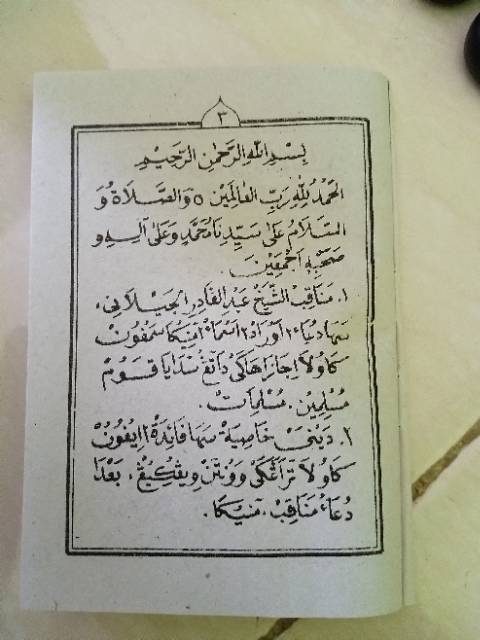 ٣
بِسْمِ اللهِ الرَّحْمٰنِ الرَّحِيْمِ
اَلْحَمْدُ لِلّٰهِ رَبِّ الْعَالَمِيْنَ ٥ وَالصَّلَاةُ وَ
السَّلَامُ عَلَى سَيِّدِنَا مُحَمَّدٍ وَعَلَى آلِهِ وَ
صَحْبِهِ اَجْمَعِيْنَ.
١. مَنَاقِبْ الشَّيْخْ عَبْدِ الْقَادِرِ الْجَيْلَانِي،
سَهَا دُعَاء٢ اَوْرَاد٢ اَسْمَاء٢ فُنِيْكَا سَمْفُوْنْ
كَاوُلَا اِجَازَاهَاكَيْ دَاتَڠْ سَدَايَا قَـوْمْ
مُسْلِمِيْنْ، مُسْلِمَاتْ.
٢. دَيْنَيْ خَاصِيَةْ سَهَا فَائِدَة٢ اِيْفُوْنْ
كَاوُلَا تَرَاڠَكَيْ وَوْنْتَنْ وِيڠْكِيْڠْ، بَعْدَا
دُعَاءْ مَنَاقِبْ، مَنِيْكَا.